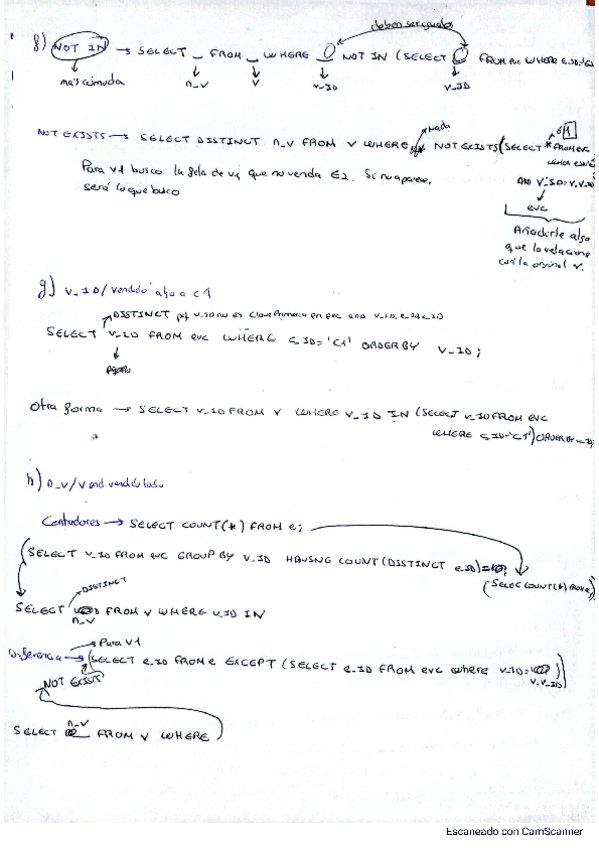 deben ser iguales
f) NOT IN → SELECT _ FROM _ WHERE _ NOT IN (SELECT _ FROM evc WHERE e_ID=
más cómoda n_V V v_ID v_ID
NOT EXISTS → SELECT DISTINCT n_V FROM V WHERE NOT EXISTS (SELECT * FROM evc
nada
Para V1 busco la fila de v1 que no venda e2. Si no aparece,
será lo que busco
AND V_ID=V.V_ID)
evc
Añadirle algo
que lo relacione
con la original V.
g) V_ID / vendido algo a C1
DISTINCT pq V_ID no es clave primaria en evc sino V_ID, e_ID, c_ID
SELECT V_ID FROM evc WHERE C_ID='C1' ORDER BY V_ID;
Otra forma → SELECT V_ID FROM V WHERE V_ID IN (SELECT V_ID FROM evc
WHERE C_ID='C1') ORDER BY V_ID;
h) n_V / V end vendido todo
Contadores → SELECT COUNT(*) FROM e;
(SELECT V_ID FROM evc GROUP BY V_ID HAVING COUNT(DISTINCT e_ID)=
(SELECT COUNT(*) FROM e)
DISTINCT
SELECT n_V FROM V WHERE V_ID IN
Para V1
Diferencia → (SELECT e_ID FROM e EXCEPT (SELECT e_ID FROM evc where V_ID= V.V_ID))
NOT EXISTS
SELECT n_V FROM V WHERE
Escaneado con CamScanner